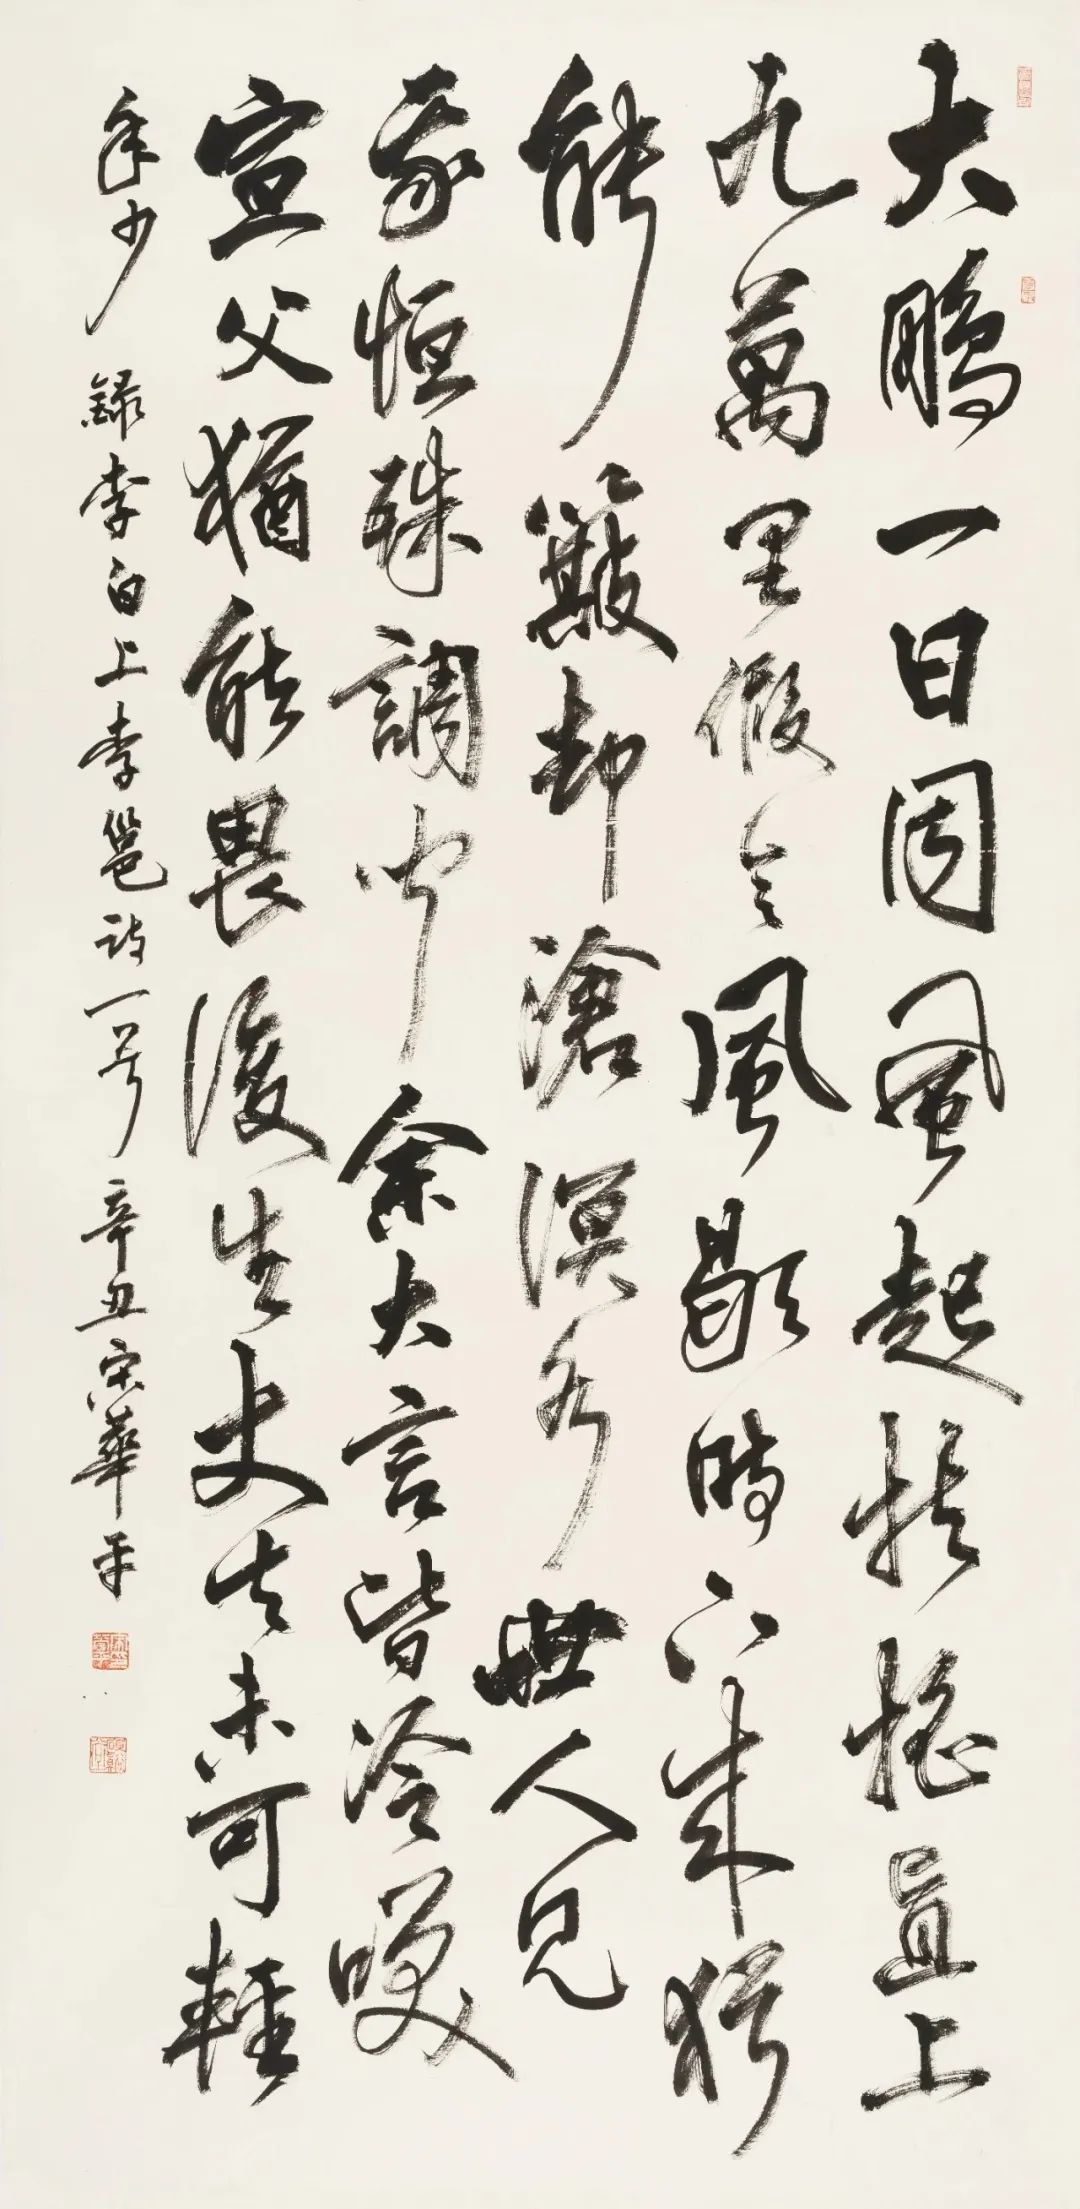 大鵬一日同風起扶搖直上
九萬里假令風歇時下來猶
能簸却滄溟水世人見
我恒殊調聞余大言皆冷咲
宣父猶能畏後生丈夫未可輕
年少 録李白上李邕詩一首 辛丑宋華平